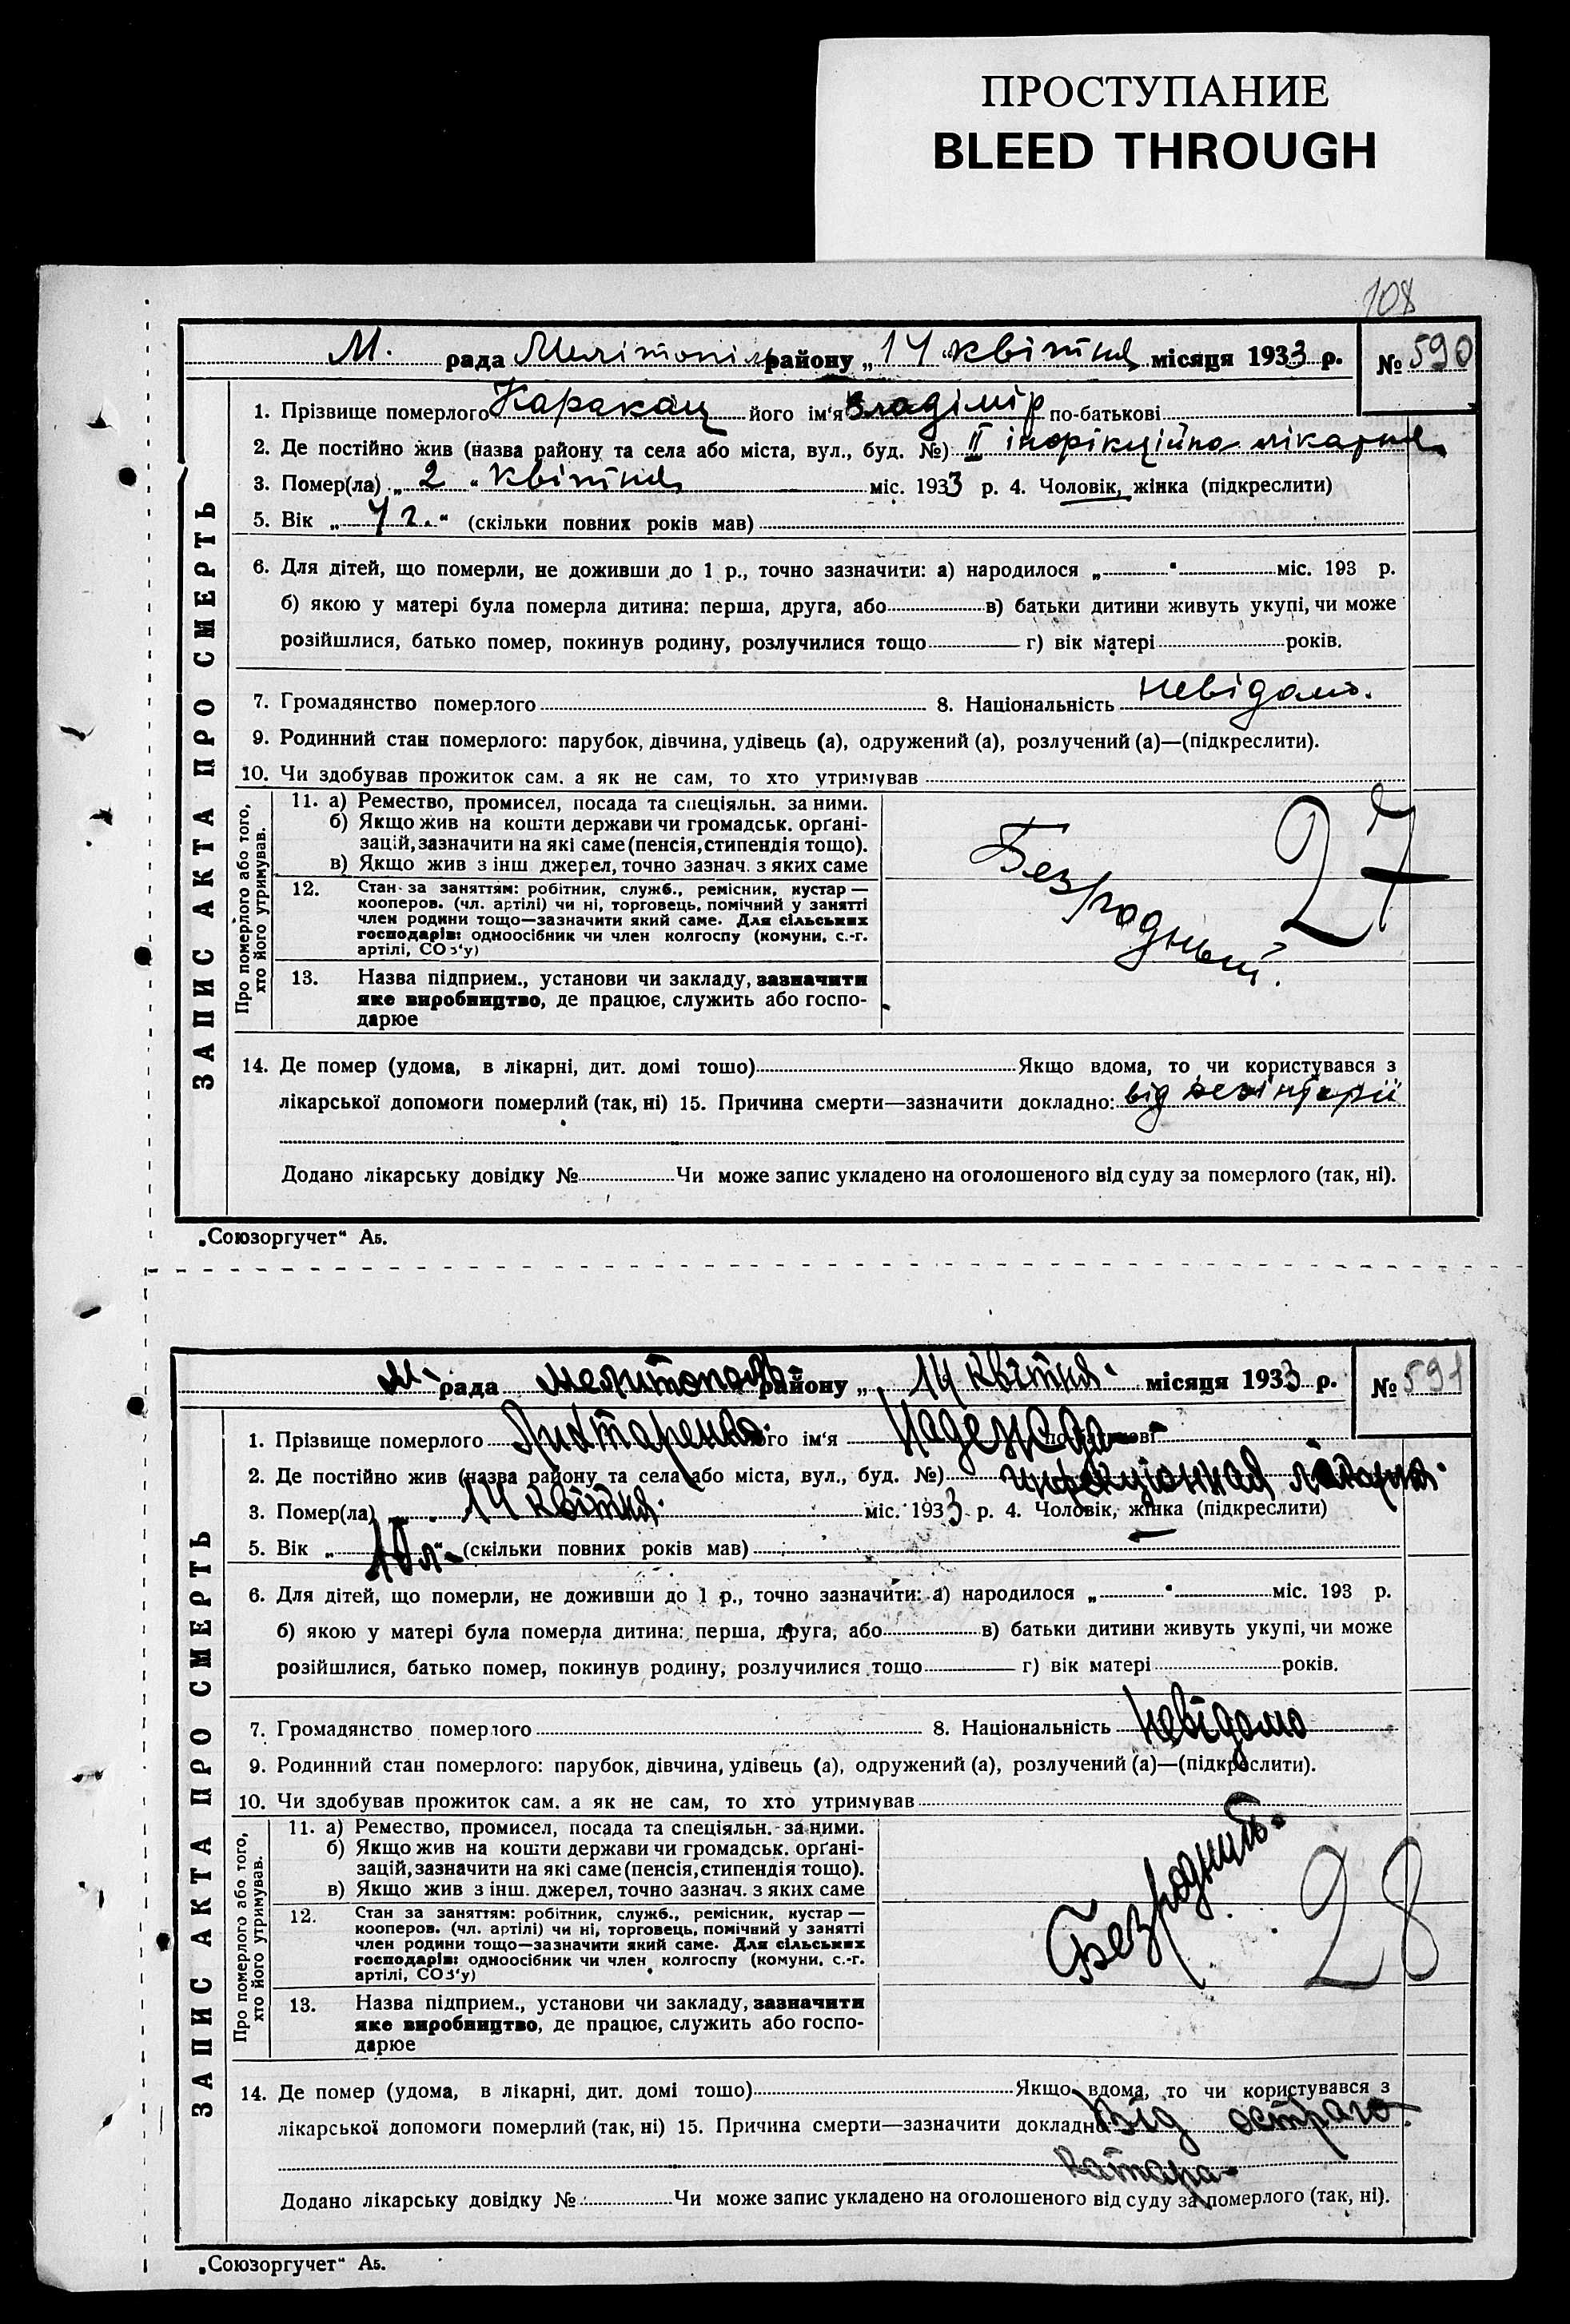 ПРОСТУПАНИЕ
BLEED THROUGH
108
М. рада Мелітопіль району „ 14 " квітня місяця 1933 р. № 590
ЗАПИС АКТА ПРО СМЕРТЬ
1. Прізвище померлого Каракац його ім'я Владімір по-батькові
2. Де постійно жив (назва району та села або міста, вул., буд. №) ІІ інфікційна лікарня
3. Помер(ла) „ 2 " Квітня міс. 1933 р. 4. Чоловік, жінка (підкреслити)
5. Вік „ г. " (скільки повних років мав)
6. Для дітей, що померли, не доживши до 1 р., точно зазначити: а) народилося „ " міс. 193 р.
б) якою у матері була померла дитина: перша, друга, або в) батьки дитини живуть укупі, чи може
розійшлися, батько помер, покинув родину, розлучилися тощо г) вік матері років.
7. Громадянство померлого 8. Національність невідомо.
9. Родинний стан померлого: парубок, дівчина, удівець (а), одружений (а), розлучений (а)—(підкреслити).
10. Чи здобував прожиток сам. а як не сам, то хто утримував
Про померлого або того, хто його утримував.
11. а) Ремество, промисел, посада та спеціяльн. за ними.
б) Якщо жив на кошти держави чи громадськ. орґані-
зацій, зазначити на які саме (пенсія, стипендія тощо).
в) Якщо жив з інш джерел, точно зазнач. з яких саме
12. Стан за заняттям: робітник, служб., ремісник, кустар —
кооперов. (чл. артілі) чи ні, торговець, помічний у занятті
член родини тощо—зазначити який саме. Для сільських
господарів: одноосібник чи член колгоспу (комуни, с.-г.
артілі, СОЗ'у)
13. Назва підприєм., установи чи закладу, зазначити
яке виробництво, де працює, служить або госпо-
дарює
Безродный.
27
14. Де помер (удома, в лікарні, дит. домі тощо) Якщо вдома, то чи користувався з
лікарської допомоги померлий (так, ні) 15. Причина смерти—зазначити докладно: від дезінтерії
Додано лікарську довідку № Чи може запис укладено на оголошеного від суду за померлого (так, ні).
„Союзоргучет" Аб.
М- рада Мелитополь району „ 14 квітня. місяця 1933 р. № 591
ЗАПИС АКТА ПРО СМЕРТЬ
1. Прізвище померлого Лихтаренко його ім'я Надежда по-батькові
2. Де постійно жив (назва району та села або міста, вул., буд. №) инфекціонная лікарня.
3. Помер(ла) „ 14 квітня. міс. 1933 р. 4. Чоловік, жінка (підкреслити)
5. Вік „ 10 л- " (скільки повних років мав)
6. Для дітей, що померли, не доживши до 1 р., точно зазначити: а) народилося „ " міс. 193 р.
б) якою у матері була померла дитина: перша, друга, або в) батьки дитини живуть укупі, чи може
розійшлися, батько помер, покинув родину, розлучилися тощо г) вік матері років.
7. Громадянство померлого 8. Національність Невідомо
9. Родинний стан померлого: парубок, дівчина, удівець (а), одружений (а), розлучений (а)—(підкреслити).
10. Чи здобував прожиток сам. а як не сам, то хто утримував
Про померлого або того, хто його утримував.
11. а) Ремество, промисел, посада та спеціяльн. за ними.
б) Якщо жив на кошти держави чи громадськ. орґані-
зацій, зазначити на які саме (пенсія, стипендія тощо).
в) Якщо жив з інш. джерел, точно зазнач. з яких саме
12. Стан за заняттям: робітник, служб., ремісник, кустар —
кооперов. (чл. артілі) чи ні, торговець, помічний у занятті
член родини тощо—зазначити який саме. Для сільських
господарів: одноосібник чи член колгоспу (комуни, с.-г.
артілі, СОЗ'у)
13. Назва підприєм., установи чи закладу, зазначити
яке виробництво, де працює, служить або госпо-
дарює
28
14. Де помер (удома, в лікарні, дит. домі тощо) Якщо вдома, то чи користувався з
лікарської допомоги померлий (так, ні) 15. Причина смерти—зазначити докладно: Від острого
катара-
Додано лікарську довідку № Чи може запис укладено на оголошеного від суду за померлого (так, ні).
„Союзоргучет" Аб.